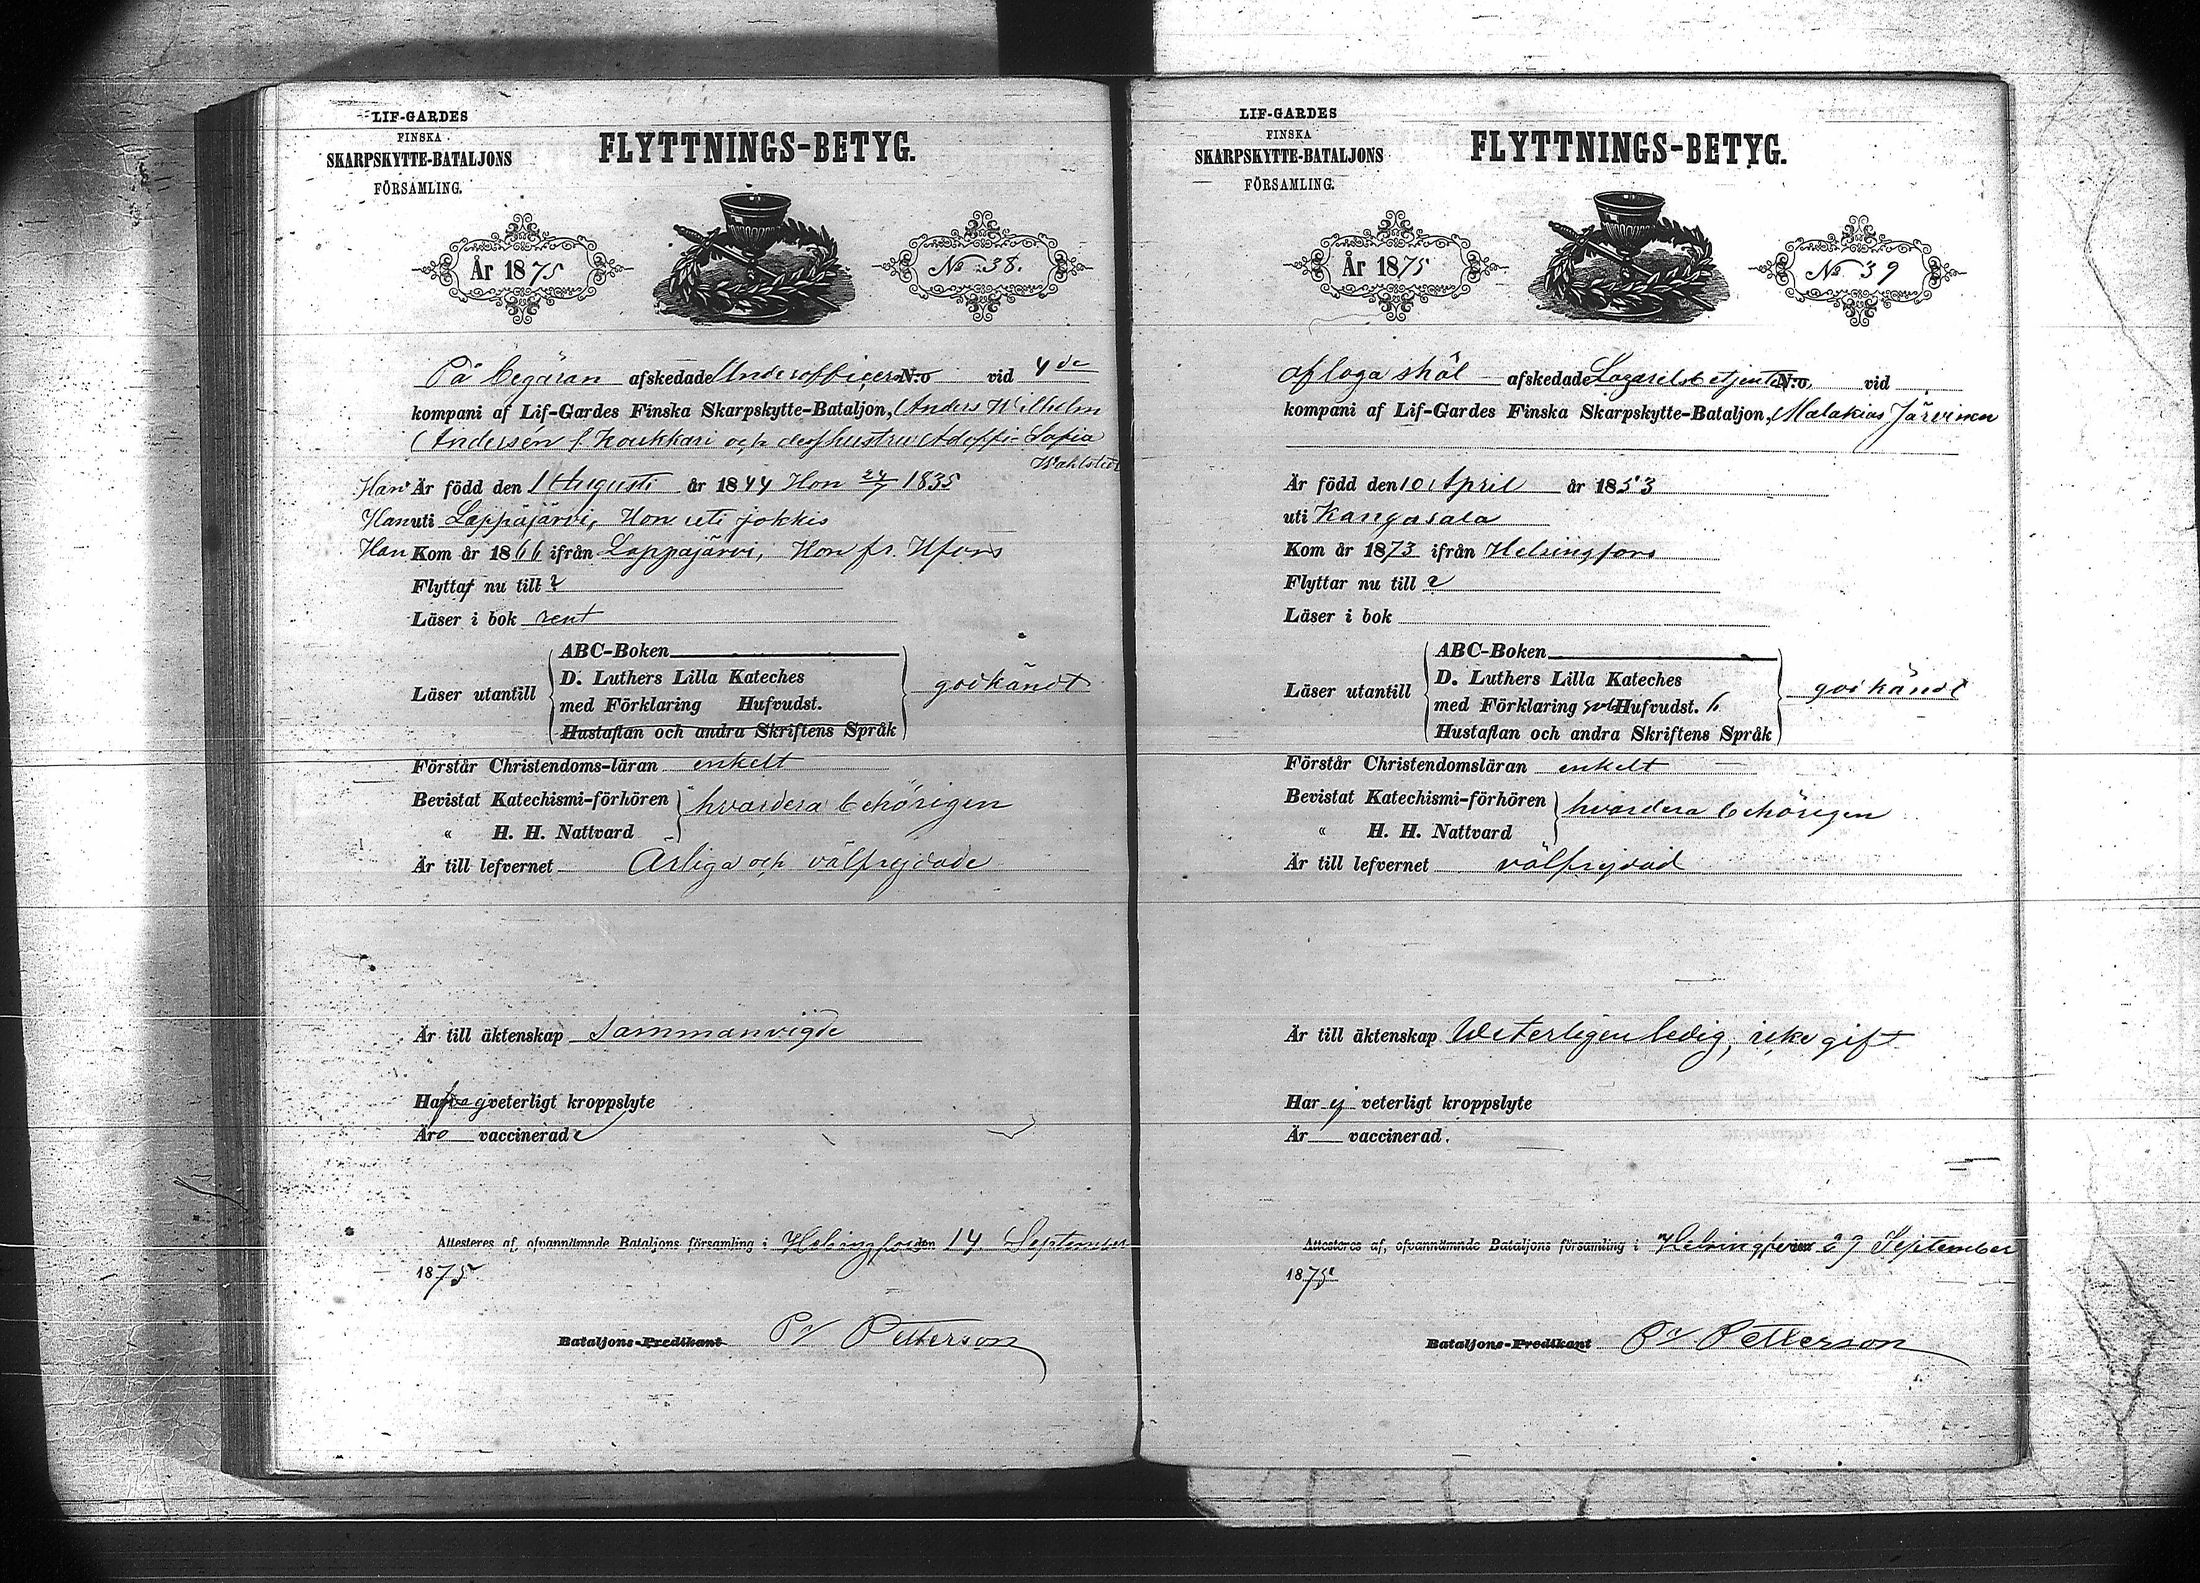 LIF-GARDES
FINSKA
SKARPSKYTTE-BATALJONS
FÖRSAMLING.
FLYTTNINGS-BETYG.
År 1875
No 38.
På begäran afskedade Underofficer N:o vid 4de
kompani af Lif-Gardes Finska Skarpskytte-Bataljon, Anders Wilhelm
Andersén f. Koukkari och dess hustru Sofia
Wahlstedt
Han Är född den 1 Augusti år 1844 Hon 24/7 1835
Han uti Lappajärvi, Hon uti Jokkis
Han Kom år 1866 ifrån Lappajärvi, Hon fr. Hfors
Flytta nu till ?
Läser i bok rent
Läser utantill
ABC-Boken
D. Luthers Lilla Kateches
med Förklaring Hufvudst.
Hustaflan och andra Skriftens Språk
godkändt
Förstår Christendoms-läran enkelt
Bevistat Katechismi-förhören
" H. H. Nattvard
hvardera behörigen
Är till lefvernet Ärliga och välfrejdade
Är till äktenskap Sammanvigde
Hafva ej veterligt kroppslyte
Äro vaccinerade
Attesteres af, ofvannämnde Bataljons församling i Helsingfors den 14 September
1875
Bataljons-Predikant P V Petterson
LIF-GARDES
FINSKA
SKARPSKYTTE-BATALJONS
FÖRSAMLING.
FLYTTNINGS-BETYG.
År 1875
No 39
af laga skäl afskedade Lazaretsbetjenten N:o vid
kompani af Lif-Gardes Finska Skarpskytte-Bataljon, Malakias Järvinen
Är född den 10 April år 1853
uti Kangasala
Kom år 1873 ifrån Helsingfors
Flyttar nu till ?
Läser i bok
Läser utantill
ABC-Boken
D. Luthers Lilla Kateches
med Förklaring Hufvudst. 6
Hustaflan och andra Skriftens Språk
godkändt
Förstår Christendomsläran enkelt
Bevistat Katechismi-förhören
" H. H. Nattvard
hvardera behörigen
Är till lefvernet välfrejdad
Är till äktenskap Weterligen ledig, icke gift
Har ej veterligt kroppslyte
Är vaccinerad.
Attesteres af, ofvannämnde Bataljons församling i Helsingfors den 29 September
1875
Bataljons-Predikant P V Petterson